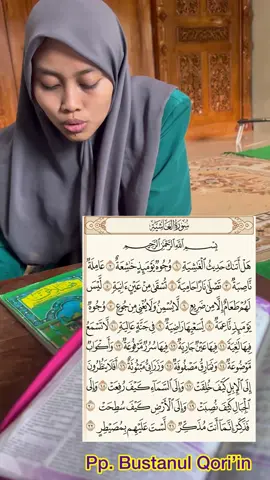 سُورَةُ الْغَاشِيَةِ
بِسْمِ اللَّهِ الرَّحْمَٰنِ الرَّحِيمِ
هَلْ أَتَىٰكَ حَدِيثُ الْغَٰشِيَةِ ١ وُجُوهٌ يَوْمَئِذٍ خَٰشِعَةٌ ٢ عَامِلَةٌ
نَّاصِبَةٌ ٣ تَصْلَىٰ نَارًا حَامِيَةً ٤ تُسْقَىٰ مِنْ عَيْنٍ ءَانِيَةٍ ٥ لَّيْسَ
لَهُمْ طَعَامٌ إِلَّا مِن ضَرِيعٍ ٦ لَّا يُسْمِنُ وَلَا يُغْنِي مِن جُوعٍ ٧ وُجُوهٌ
يَوْمَئِذٍ نَّاعِمَةٌ ٨ لِّسَعْيِهَا رَاضِيَةٌ ٩ فِي جَنَّةٍ عَالِيَةٍ ١٠ لَّا تَسْمَعُ
فِيهَا لَٰغِيَةً ١١ فِيهَا عَيْنٌ جَارِيَةٌ ١٢ فِيهَا سُرُرٌ مَّرْفُوعَةٌ ١٣ وَأَكْوَابٌ
مَّوْضُوعَةٌ ١٤ وَنَمَارِقُ مَصْفُوفَةٌ ١٥ وَزَرَابِيُّ مَبْثُوثَةٌ ١٦ أَفَلَا يَنظُرُونَ
إِلَى الْإِبِلِ كَيْفَ خُلِقَتْ ١٧ وَإِلَى السَّمَاءِ كَيْفَ رُفِعَتْ ١٨ وَإِلَى
الْجِبَالِ كَيْفَ نُصِبَتْ ١٩ وَإِلَى الْأَرْضِ كَيْفَ سُطِحَتْ ٢٠
فَذَكِّرْ إِنَّمَا أَنتَ مُذَكِّرٌ ٢١ لَّسْتَ عَلَيْهِم بِمُصَيْطِرٍ ٢٢
Pp. Bustanul Qori'in